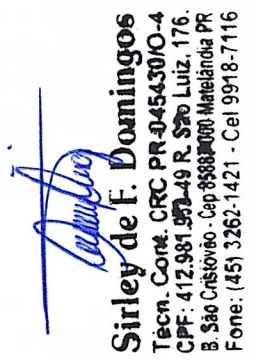 Sirley de F. Domingos
Técn. Cont. CRC PR-045430/O-4
CPF: 412.981. -49 R. São Luiz, 176.
B. São Cristóvão - Cep Matelândia PR
Fone: (45) 3262-1421 - Cel 9918-7116